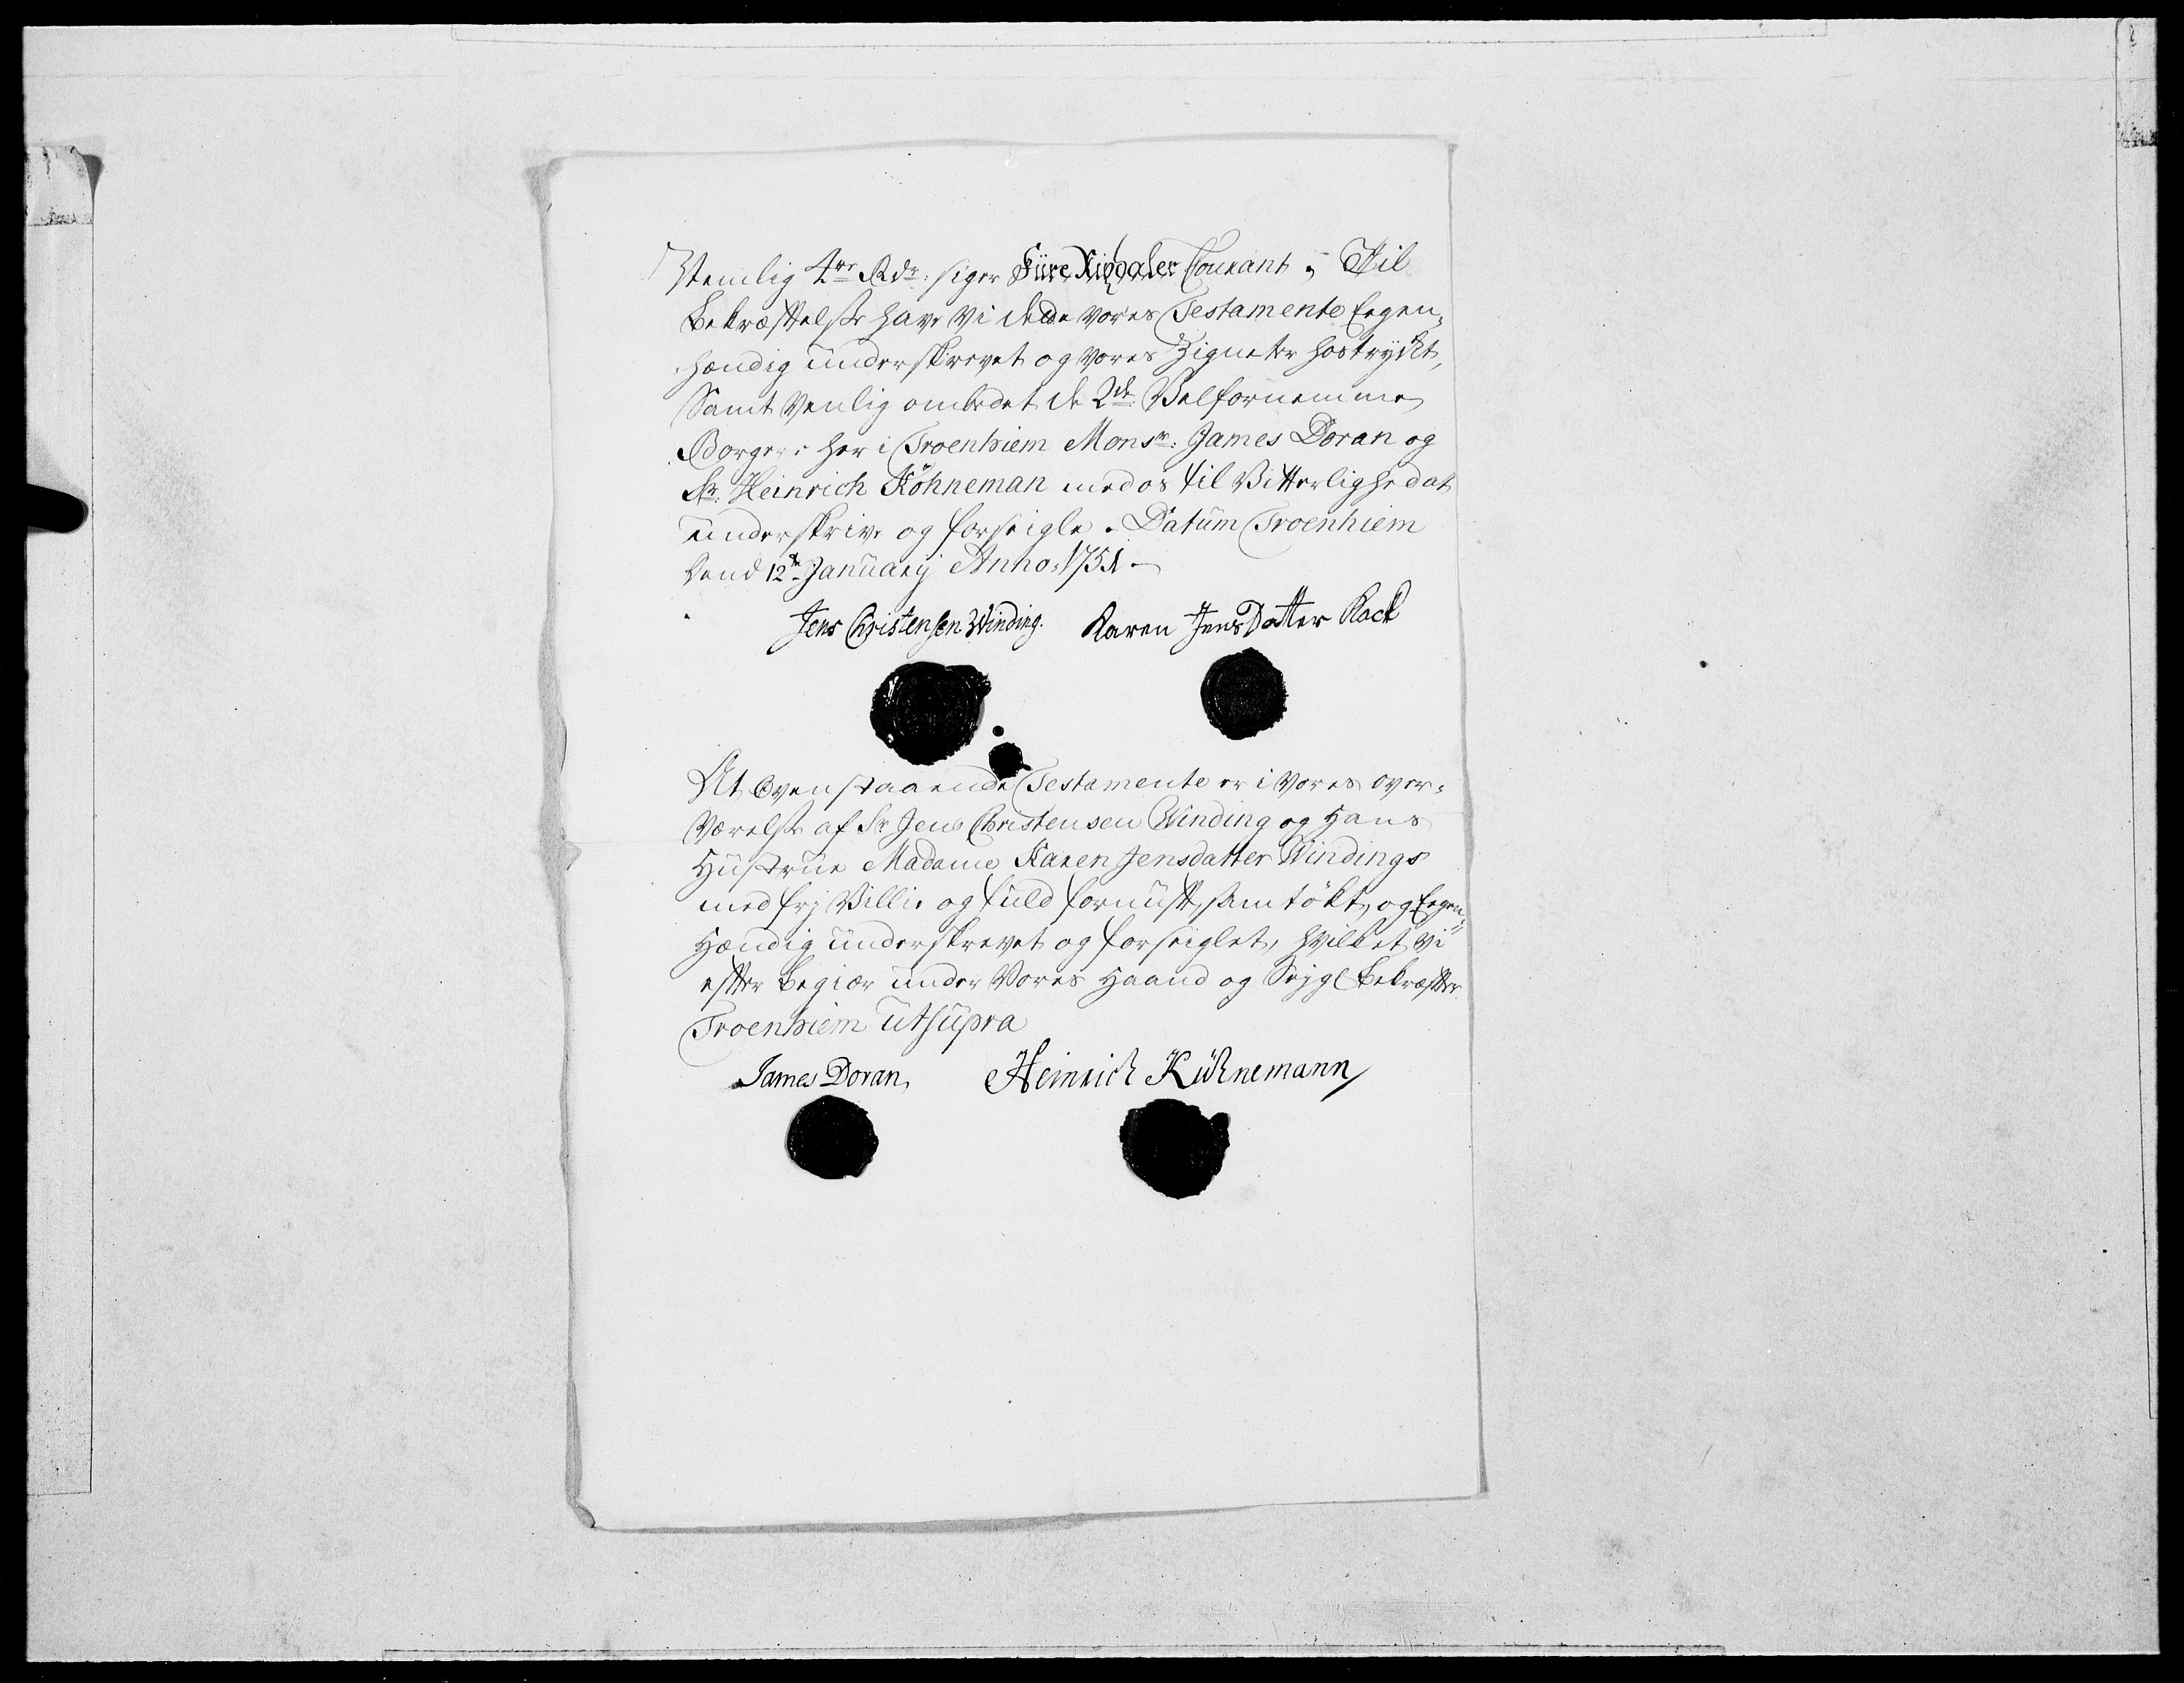 Nemlig 4re Rdr: siger Fiire Rixdaler Courant, Til
Bekræftelse have vi dette vores Testamente Eegen-
hændig underskrevet og vores Zigneter hostrykt,
Samt venlig ombedet de 2de Velfornemme
Borgere her i Troenhiem Monsr: James Doran og
Sr: Heinrich Köhneman med os til Vitterlighedat
underskrive og forseigle. Datum Troenhiem
Dend 12te January Anno 1751 -
Jens Christensen Winding. Karen JensDatter Rack
At Ovenstaaende Testamente er i vores over-
værelse af Sr Jens Christensen Winding og Hans
Hustrue Madame Karen Jensdatter Windings
med frj Villie og fuld fornuft, samtökt, og Eegen-
Hændig underskrevet og forseiglet, hvilket vi
efter begiær under Vores Haand og Sejgl Bekræfter
Troenhiem ut supra
James Doran, Heinrich Kühnemann